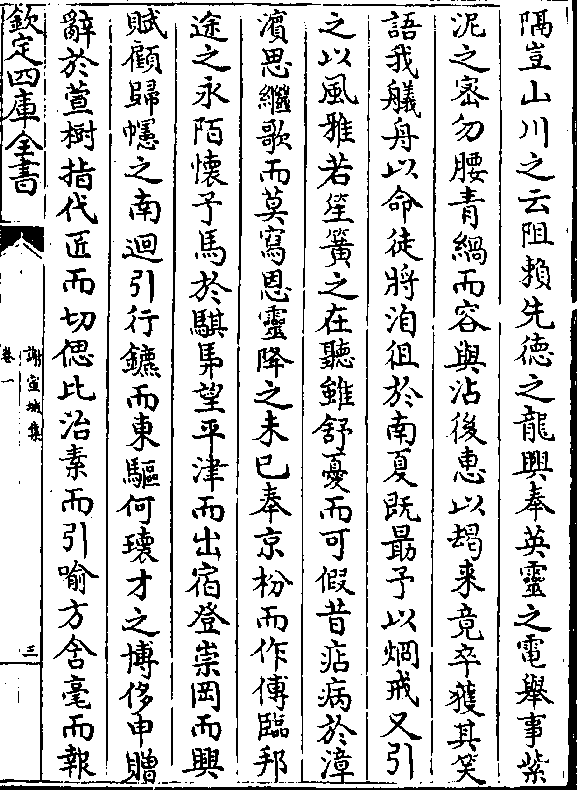 隔豈山川之云阻賴先德之龍興奉英靈之電舉事紫
泥之密勿腰青緺而容與沾後惠以朅来竟卒獲其笑
語我艤舟以命徒將汎徂於南夏既勗予以炯戒又引
之以風雅若笙簧之在聽雖舒憂而可假昔痁病於漳
濱思繼歌而莫寫恩靈降之未已奉京枌而作傅臨邦
途之永陌懷予馬於騏馵望平津而出宿登崇岡而興
賦顧歸幰之南迴引行鑣而東驅何瓌才之博侈申贈
辭於萱樹指代匠而切偲比治素而引喻方含毫而報
欽定四庫全書
謝宣城集
卷一
三